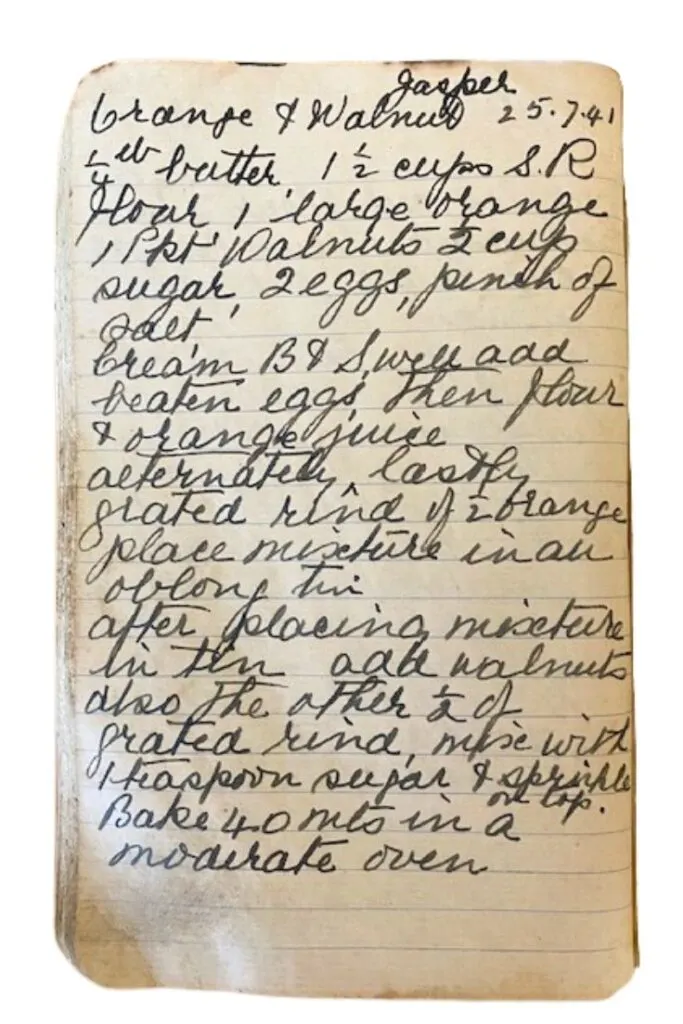 Jasper
Orange & Walnut 25.7.41
1/4 lb butter, 1 1/2 cups S.R
flour 1 large orange
1 Pkt Walnuts 1/2 cup
sugar, 2 eggs, pinch of
salt,
Cream B & S, well add
beaten eggs, then flour
& orange juice
alternately, lastly
grated rind of 1/2 orange
place mixture in an
oblong tin
after placing mixture
in tin add walnuts
also the other 1/2 of
grated rind, mix with
1 teaspoon sugar & sprinkle
on top.
Bake 40 mts in a
moderate oven